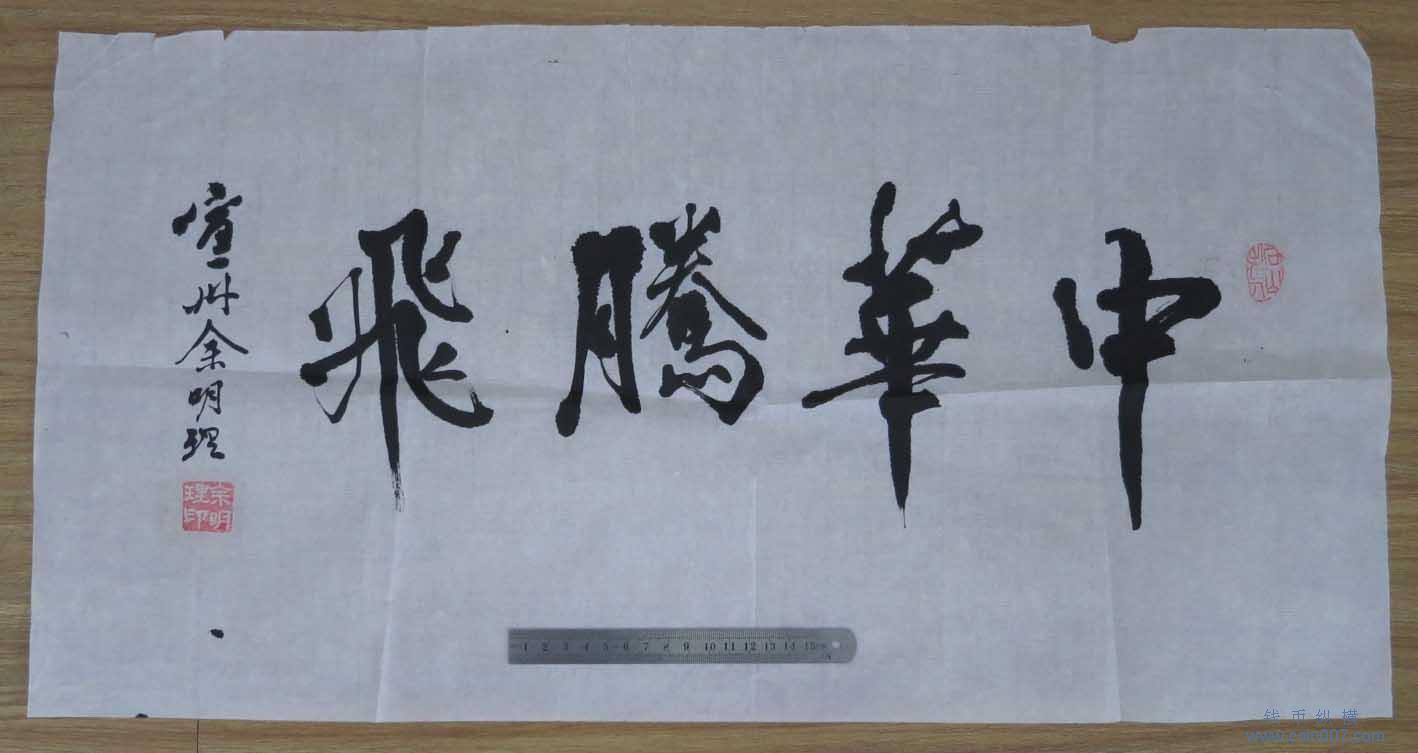 中華騰飛
宣州余明理
余明理印
1 2 3 4 5 6 7 8 9 10 11 12 13 14 15
钱币纵横
www.coin007.com